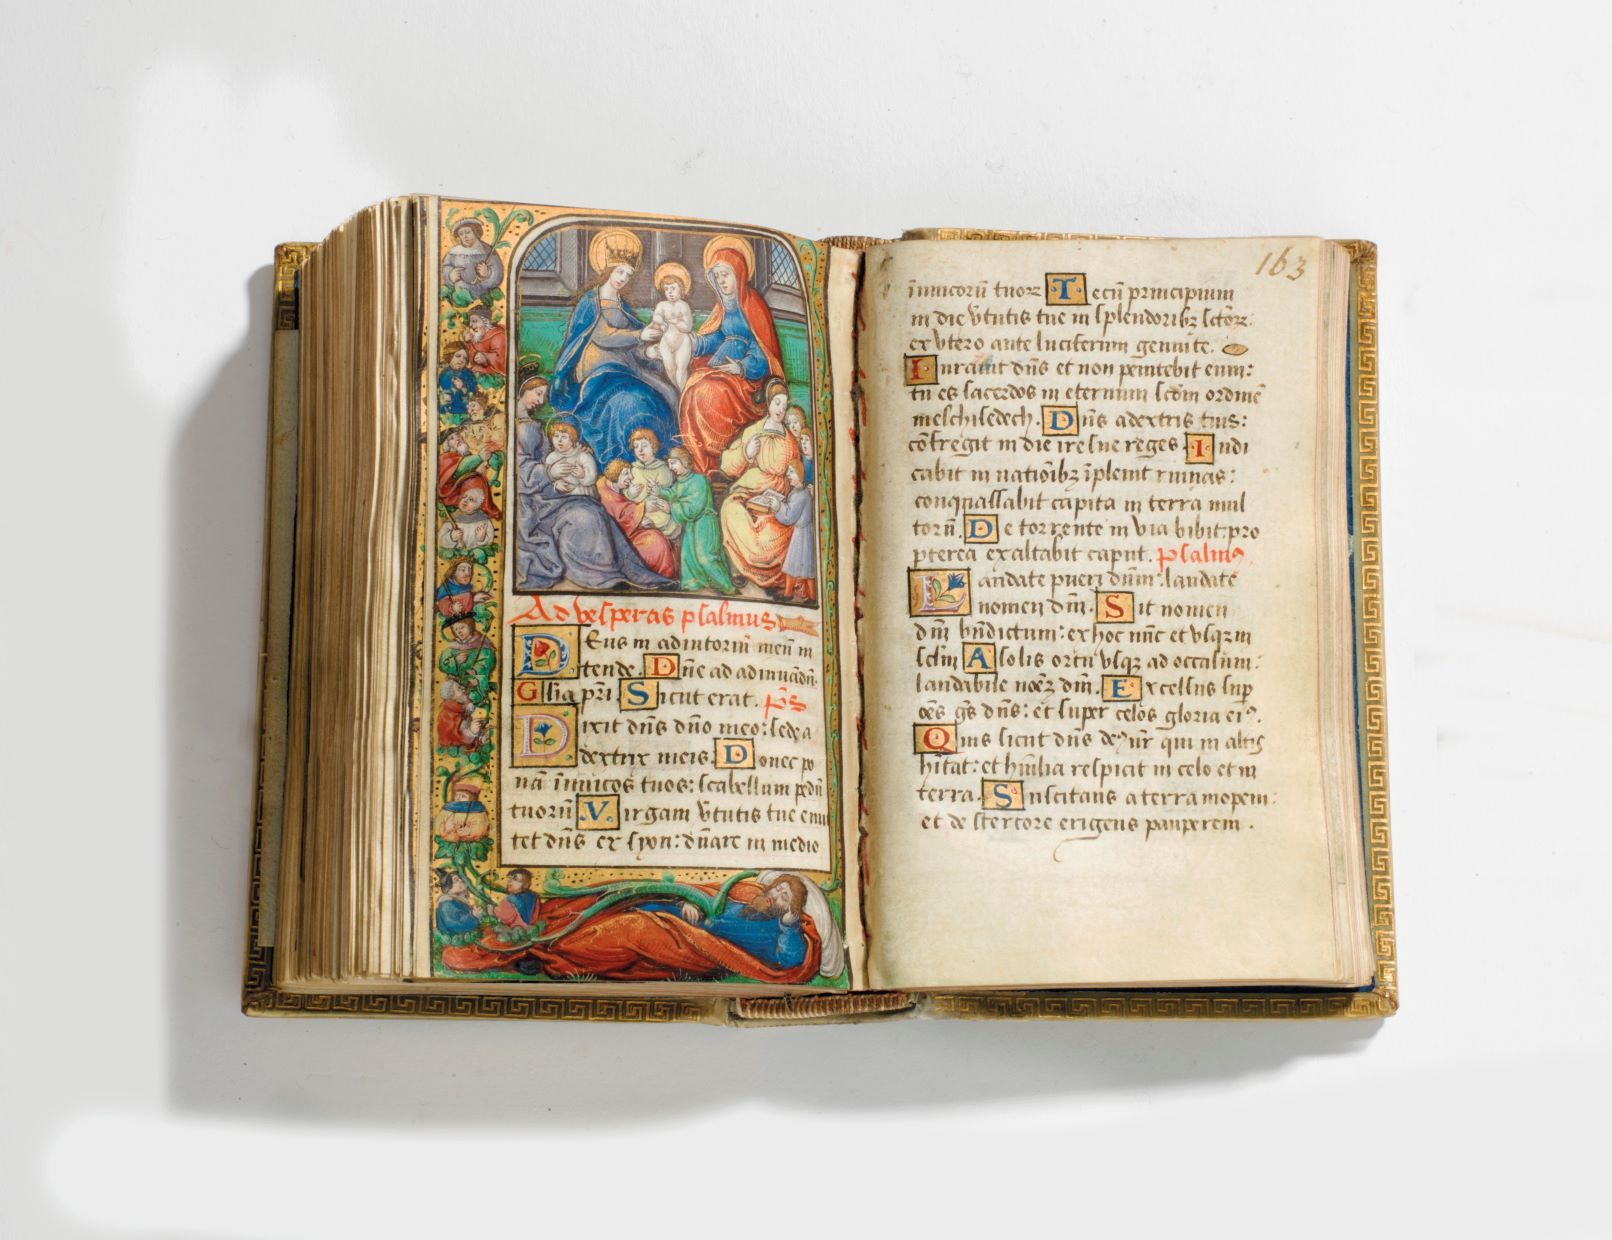 Ad vesperas psalmus
DEus in adiutoriū meū in
tende. Dn̄e ad adiuvādū
Gl̄ia pr̄i Sicut erat. p̄s
Dixit dn̄s dn̄o meo: sede a
dextris meis. Donec po
nā inimicos tuos: scabellum pedū
tuorū Virgam v̄tutis tue emit
tet dn̄s ex syon: dn̄are in medio
163
īimicorū tuorꝝ Tecū principium
in die v̄tutis tue in splendoribꝫ sctorꝝ
ex vtero ante luciferum genui te.
Iuravit dn̄s et non penitebit eum:
tu es sacerdos in eternum scdm̄ ordinē
melchisedech. Dn̄s a dextris tuis:
cōfregit in die ire sue reges Iudi
cabit in natiōibꝫ īplevit ruinas:
conquassabit capita in terra mul
torū. De torrente in via bibit: pro
pterea exaltabit caput. Psalmꝰ
Laudate pueri dn̄m: laudate
nomen dn̄i. Sit nomen
dn̄i bn̄dictum: ex hoc nūc et vsqꝫ in
sclm̄ A solis ortu vsqꝫ ad occasum:
laudabile nom̄ dn̄i. Excelsus sup̄
oēs gēs dn̄s: et super celos gloria eiꝰ.
Quis sicut dn̄s deꝰ nr̄ qui in altis
hītat: et hūilia respicit in celo et in
terra. Suscitans a terra inopem:
et de stercore erigens pauperem.